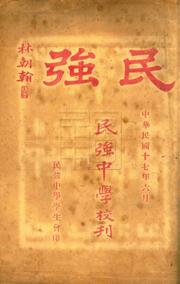 民強
中華民國十七年六月
民強中學校刊
民強中學學生會印
林朝翰